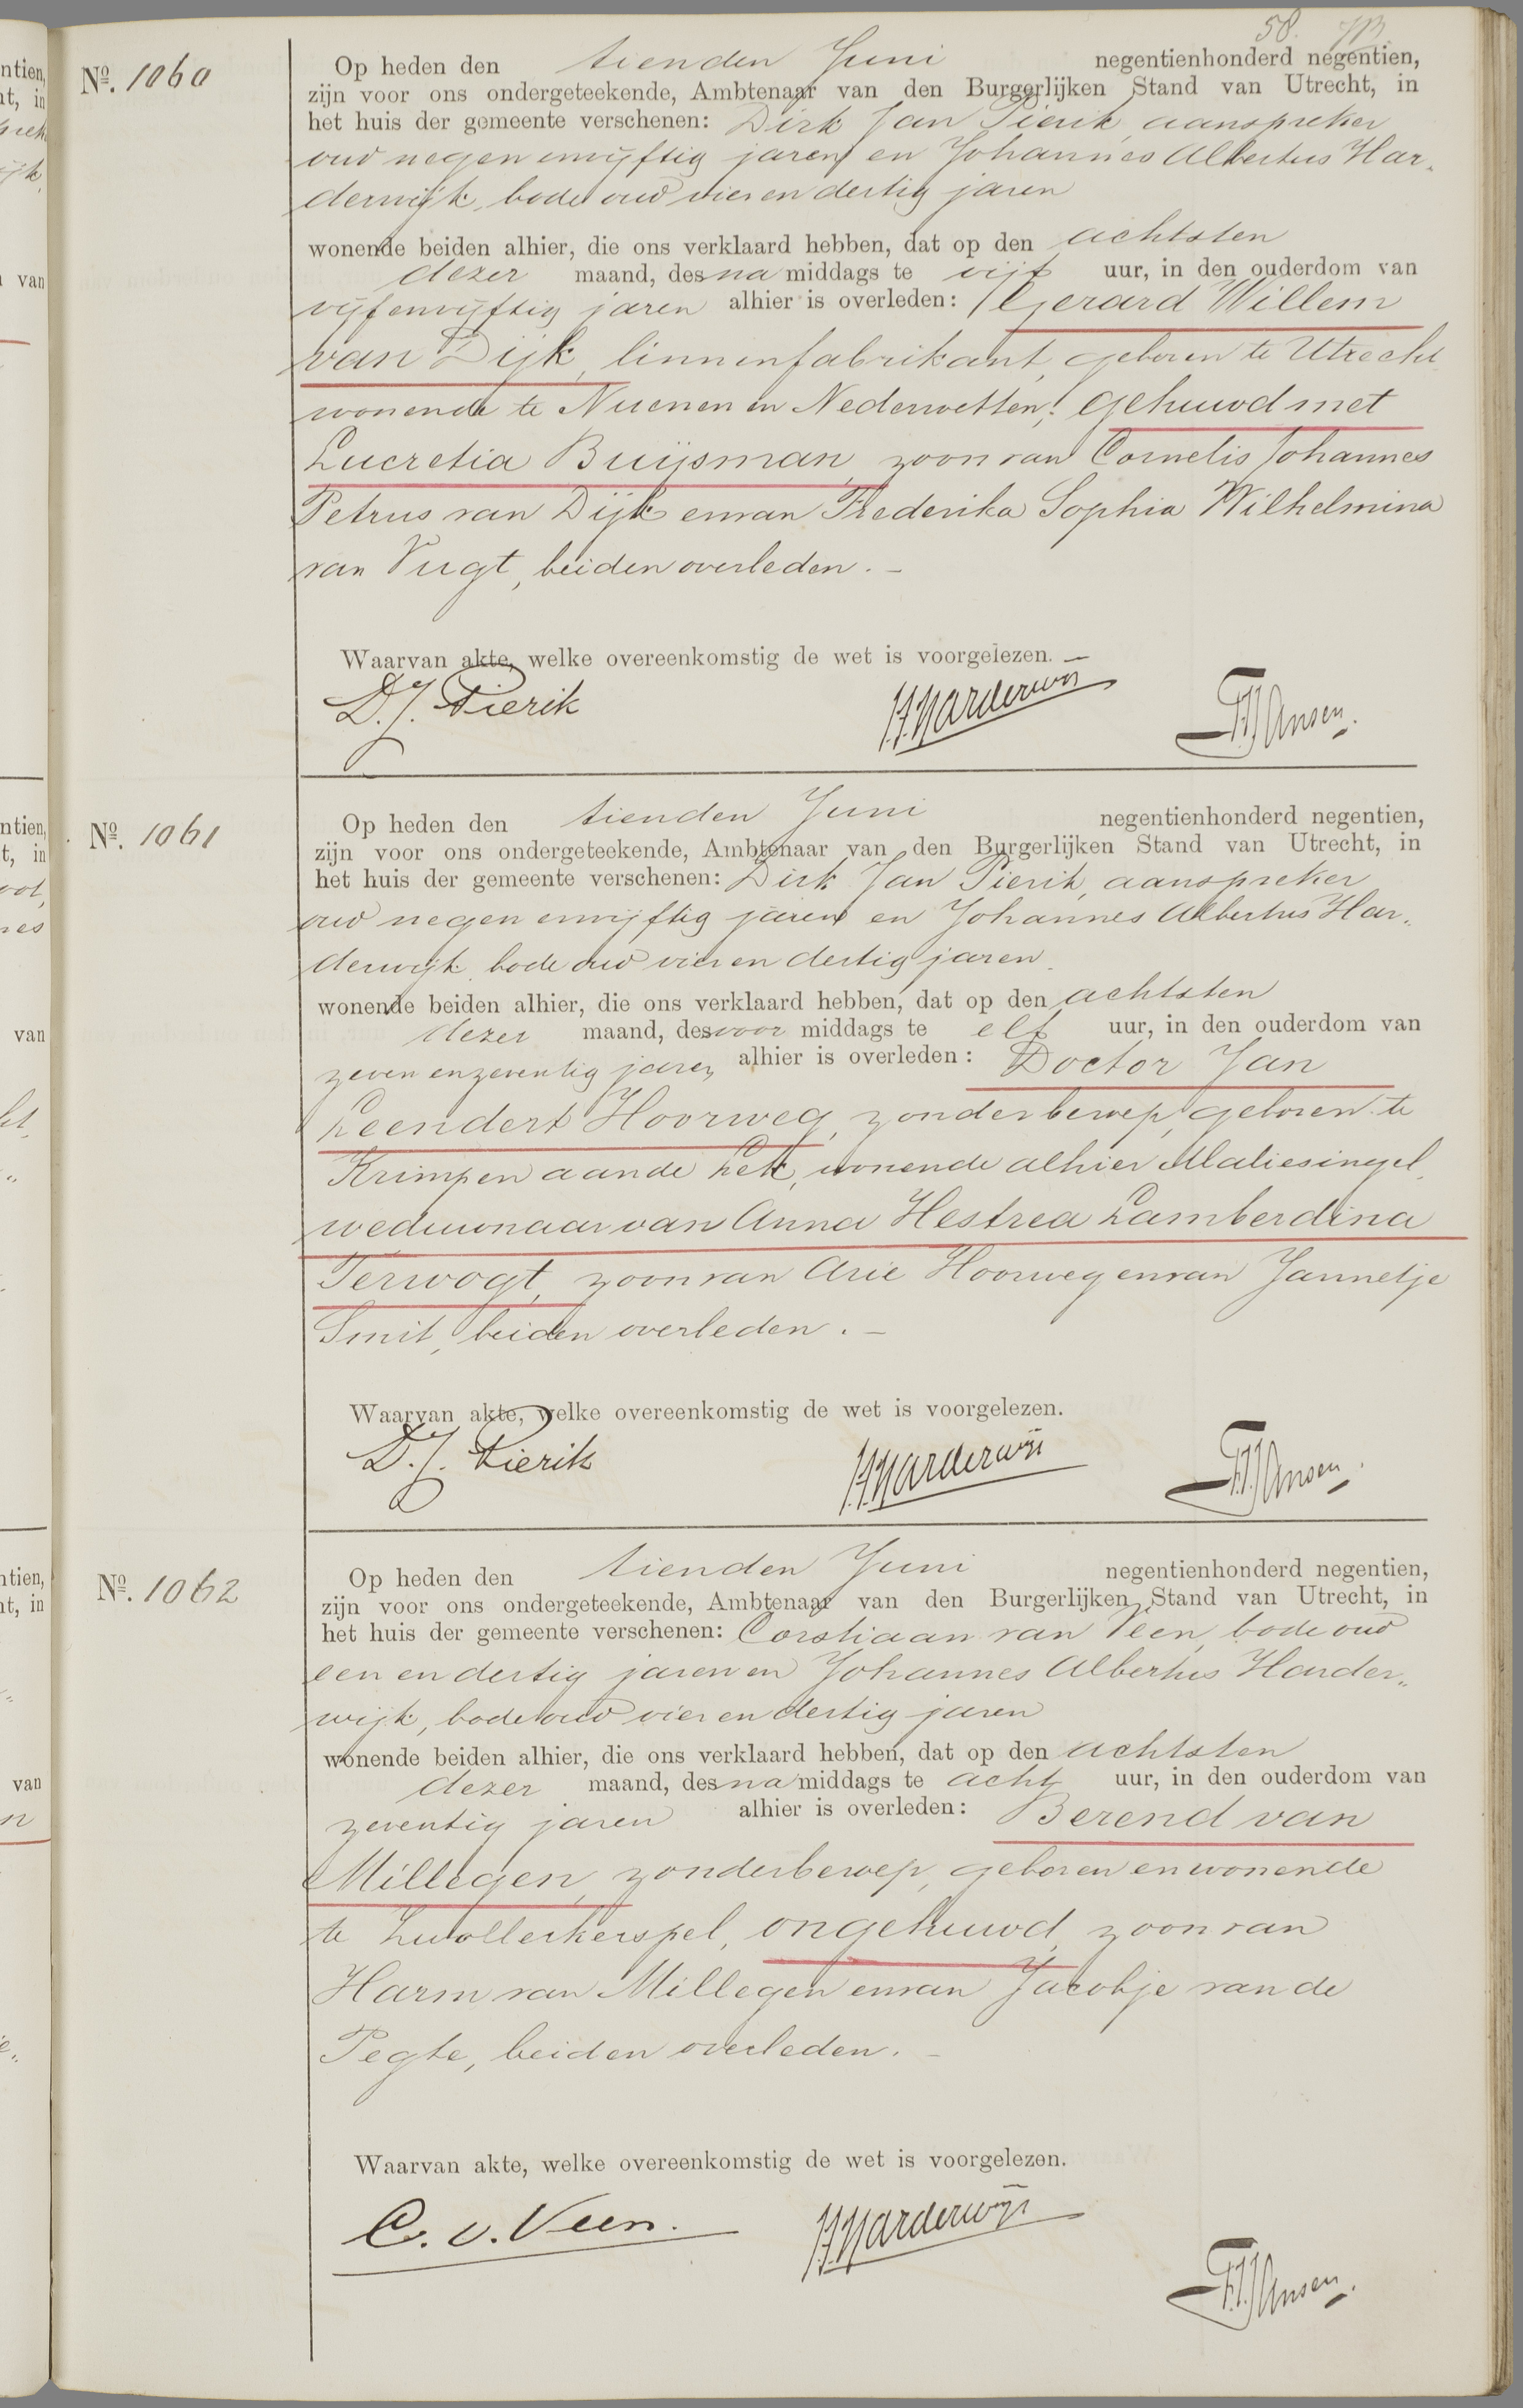 58.
Nº. 1060
Op heden den tienden Juni negentienhonderd negentien,
zijn voor ons ondergeteekende, Ambtenaar van den Burgerlijken Stand van Utrecht, in
het huis der gemeente verschenen: Dirk Jan Pierik, aanspreker
oud negen envijftig jaren en Johannes Albertus Har-
derwijk, bode oud vier en dertig jaren
wonende beiden alhier, die ons verklaard hebben, dat op den achtsten
dezer maand, des na middags te vijf uur, in den ouderdom van
vijfenvijftig jaren alhier is overleden: Gerard Willem
van Dijk, linnenfabrikant, geboren te Utrecht
wonende te Nuenen en Nederwetten, gehuwd met
Lucretia Buijsman, zoon van Cornelis Johannes
Petrus van Dijk en van Frederika Sophia Wilhelmina
van Vugt, beiden overleden. –
Waarvan akte, welke overeenkomstig de wet is voorgelezen. –
D.J. Pierik Harderwijk Jansen.
Nº. 1061
Op heden den tienden Juni negentienhonderd negentien,
zijn voor ons ondergeteekende, Ambtenaar van den Burgerlijken Stand van Utrecht, in
het huis der gemeente verschenen: Dirk Jan Pierik, aanspreker
oud negen envijftig jaren en Johannes Albertus Har„
derwijk bode oud vier en dertig jaren
wonende beiden alhier, die ons verklaard hebben, dat op den achtsten
dezer maand, des voor middags te elf uur, in den ouderdom van
zeven enzeventig jaren alhier is overleden: Doctor Jan
Leendert Hoorweg, zonder beroep, geboren te
Krimpen aan de Lek, wonende alhier Maliesingel,
weduwnaar van Anna Hestrea Lamberdina
Terwogt, zoon van Arie Hoorweg en van Jannetje
Smit, beiden overleden. –
Waarvan akte, welke overeenkomstig de wet is voorgelezen.
D.J. Pierik Harderwijk Jansen.
Nº. 1062
Op heden den tienden Juni negentienhonderd negentien,
zijn voor ons ondergeteekende, Ambtenaar van den Burgerlijken Stand van Utrecht, in
het huis der gemeente verschenen: Corstiaan van Veen, bode oud
een en dertig jaren en Johannes Albertus Harder„
wijk, bode oud vier en dertig jaren
wonende beiden alhier, die ons verklaard hebben, dat op den achtsten
dezer maand, des na middags te acht uur, in den ouderdom van
zeventig jaren alhier is overleden: Berend van
Millegen, zonder beroep, geboren en wonende
te Zwollerkerspel, ongehuwd, zoon van
Harm van Millegen en van Jacobje van de
Pegte, beiden overleden. –
Waarvan akte, welke overeenkomstig de wet is voorgelezen.
C. v. Veen. Harderwijk Jansen.